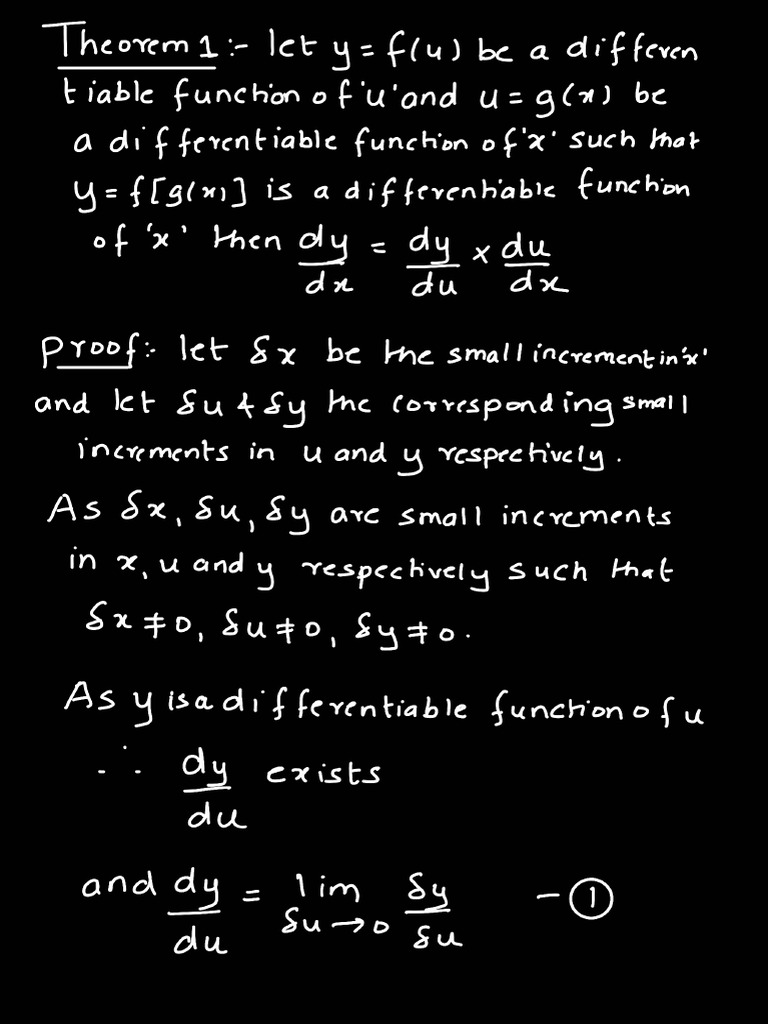 Theorem 1 :- let y = f(u) be a differen
tiable function of 'u' and u = g(x) be
a differentiable function of 'x' such that
y = f[g(x)] is a differentiable function
of 'x' then dy/dx = dy/du × du/dx
Proof :- let δx be the small increment in 'x'
and let δu & δy the corresponding small
increments in u and y respectively.
As δx, δu, δy are small increments
in x, u and y respectively such that
δx ≠ 0, δu ≠ 0, δy ≠ 0.
As y is a differentiable function of u
∴ dy/du exists
and dy/du = lim δu→0 δy/δu - ①